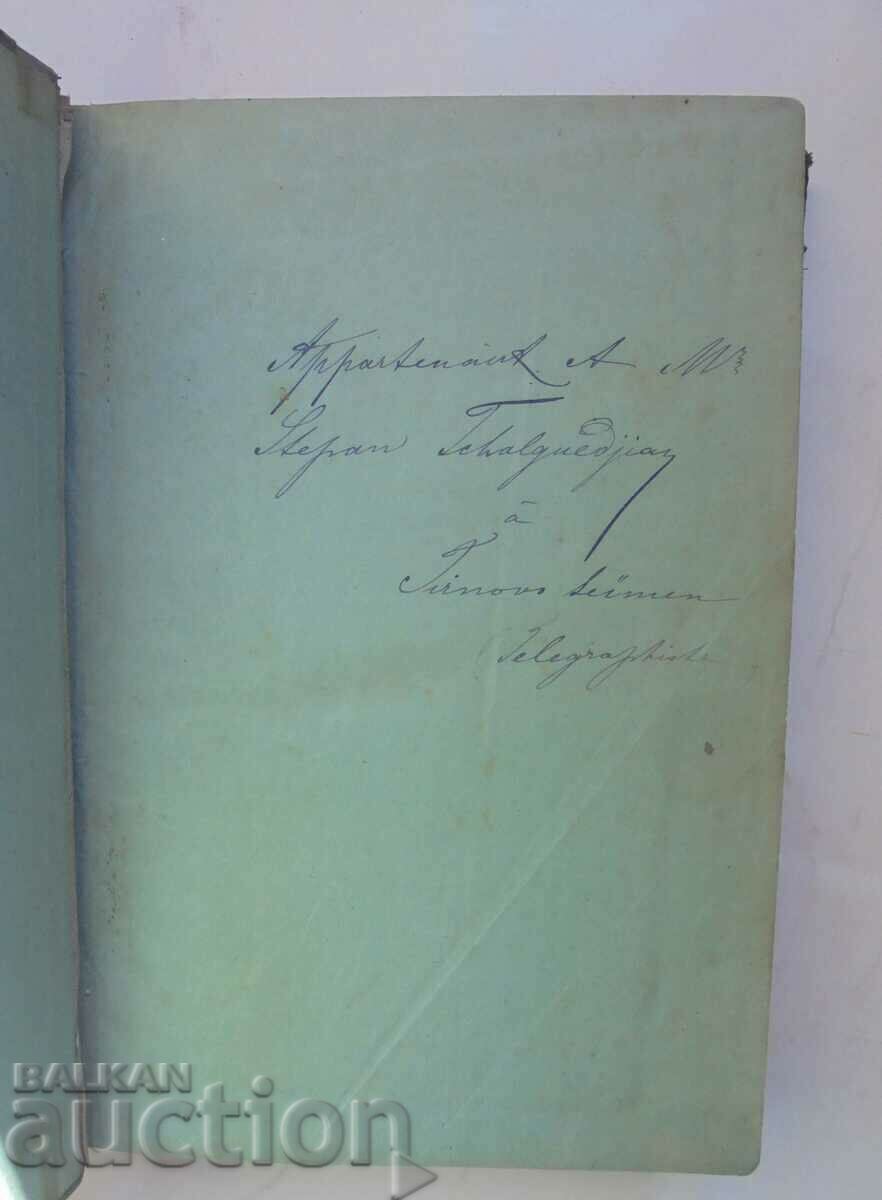 Appartenant A Mr
Stepan Tchalguedjian
à
Tirnovo Seïmen
Telegraphiste
BALKAN
auction